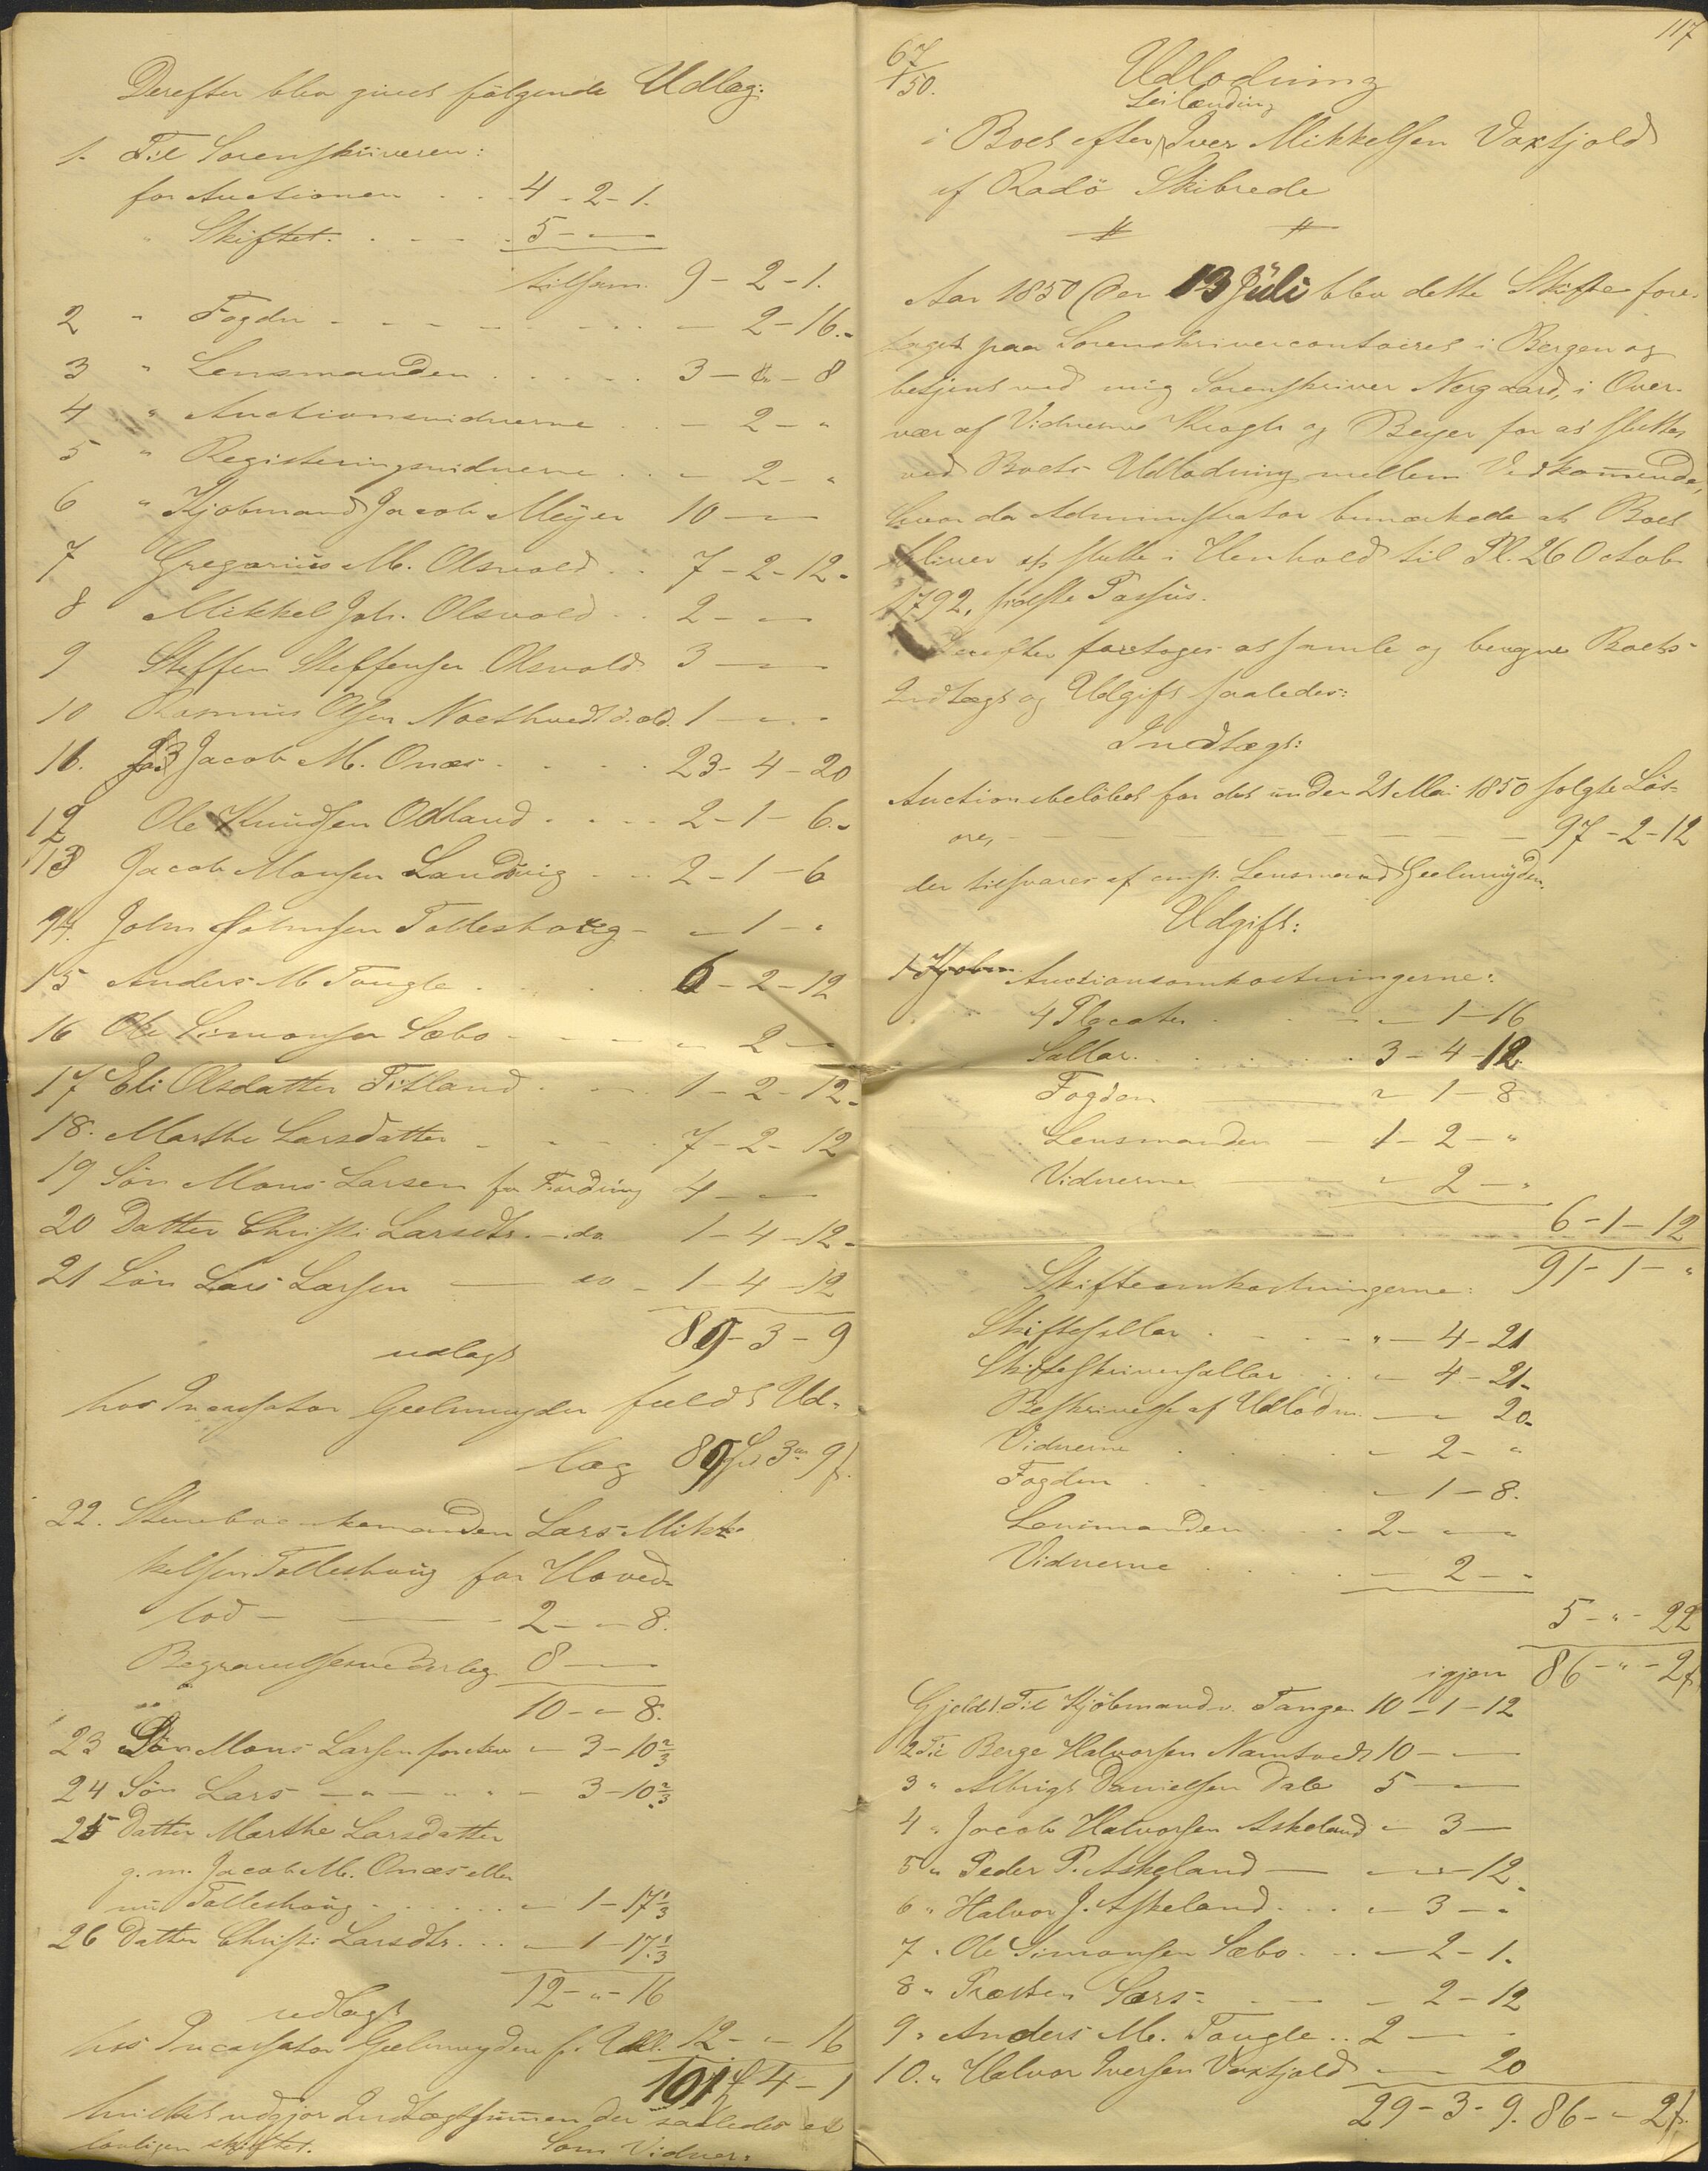 Derefter blev givet følgende Udlæg:
1. Til Sorenskriveren:
for Auctionen . . 4 - 2 - 1.
" Skiftet . . . 5 - "
tilsam. 9 - 2 - 1.
2 " Fogden - - - " - 2 - 16.
3 " Lensmanden . . . . . 3 - " - 8
4 " Auctionsvidnerne . . - 2 - "
5 " Registeringsvidnerne . . - 2 - "
6 " Kjøbmand Jacob Meÿer 10 - "
7 Gregorius M. Olsvold . . 7 - 2 - 12.
8 Mikkel Joh. Olsvold . . 2 - "
9 Steffen Steffensen Olsvold 3 - "
10 Rasmus Olsen 1 - " - "
11. Jacob M. Onæs . . . . 23 - 4 - 20
12 Ole Knudsen Odland . . . . 2 - 1 - 6.
13 Jacob Monsen Landvig . . . 2 - 1 - 6
14. John Johnsen Tolleshoug - " - 1 - "
15 Anders M Tougle . . . . 6 - 2 - 12
16 Ole Simonsen Sæbo - - - " 2 - "
17 Eli Olsdatter Titland . . . 1 - 2 - 12.
18. Marthe Larsdatter - - - . 7 - 2 - 12
19 Søn Mons Larsen for Fordring 4 - "
20 Datter Christi Larsdtr. - do 1 - 4 - 12.
21 Søn Lars Larsen — do - 1 - 4 - 12
89 - 3 - 9
udlagt
hos Incassator Geelmuyden fuldt Ud-
læg 89 3 9
22. Lars Mik-
kelsen Tolleshoug for Hoved-
lod - — - 2 - " - 8.
Begravelses 8 - "
10 - " - 8.
23 Søn Mons Larsen " - 3 - 10 2/3
24 Søn Lars - " - " - 3 - 10 2/3
25 Datter Marthe Larsdatter
g. m. Jacob M. Onæs eller
nu Tolleshoug . . . . . - 1 - 17 1/3
26 Datter Christi Larsdtr. . . . - 1 - 17 1/3
12 - " - 16
udlagt
hos Incassator Geelmuyden f. Udl. 12 - " - 16
101 4 - 1
hvilket udgjør Indtægtsummen der saaledes er
lovligen skiftet. Som Vidner:
117
67/50.
Udlodning
Leilænding
i Boet efter Iver Mikkelsen Vaxfjold
af Radö Skibrede
Aar 1850 den 13 Juli blev dette Skifte fore-
taget paa Sorenskrivercontoiret i Bergen og
betjent ved mig Sorenskriver Nergaard, i Over-
vær af Vidnerne Krogh og Beyer for at slutte
ved Boets Udlodning mellem Vedkommende,
hvor da Administrator bemærkede at Boet
bliver at slutte i Henhold til Pl. 26 Octob.
1792, sidste Passus.
Derefter foretoges at samle og beregne Boets
Indtægt og Udgift saaledes:
Indtægt:
Auctionsbeløbet for det under 21 Mai 1850 solgte Løs-
øre, - — — — 97 - 2 - 12
der tilsvares af const. Lensmand Geelmuÿden.
Udgift:
1 Kjøbm Auctionsomkostningerne:
4 Placater . . . - 1 - 16
Sallar . . . . . 3 - 4 - 12.
Fogden — " - 1 - 8
Lensmanden — 1 - 2 - "
Vidnerne — " 2 - "
6 - 1 - 12
91 - 1 - "
Skifteomkostningerne:
Skiftesallar . . . . " - 4 - 21
Skifteskriversallar . . " - 4 - 21.
Beskrivelse af Udlodn. - " - 20.
Vidnerne . . . - 2 - "
Fogden . . . - 1 - 8.
Lensmanden . 2 - " - "
Vidnerne . . . . . - 2 - "
5 - " - 22
igjen 86 - " - 2
Gjeld 1. Til Kjöbmand v. Tangen 10 - 1 - 12
2 Til Berge Halvorsen Namtvedt 10 - "
3 " Albrigt Danielsen Dale 5 - "
4 " Jacob Halvorsen Askeland " - 3 -
5 " Peder P. Askeland — - " - 12.
6 " Halvor J. Askeland . . . " - 3 - "
7 " Ole Simonsen Sæbo . . . - 2 - 1.
8 " Præsten Sars - — - 2 - 12
9 " Anders M. Tougle . . 2 - " - "
10. " Halvor Iversen Vaxfjold - " 20
29 - 3 - 9. 86 - " - 2